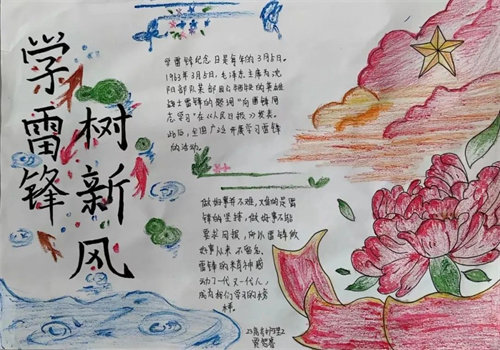 学雷锋
树新风
学雷锋纪念日是每年的3月5日。
1963年3月5日,毛泽东主席为沈
阳部队某部
战士雷锋的题词"向雷锋同
志学习"在《人民日报》发表。
此后,全国广泛开展学习雷锋
的活动。
做好事并不难,难的是雷
锋的坚持,做好事不能
要求回报,所以雷锋做
好事从来不留名。
雷锋的精神感
动了一代又一代人,
成为我们学习的榜
样。